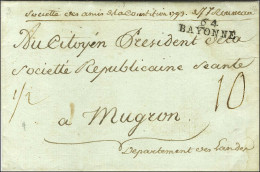 Societé des amis de la Constitution 1793.
64
BAYONNE
Au Citoyen President de la
Societté Republicaine Seante
1/2 10
a Mugron.
Departement des Landes